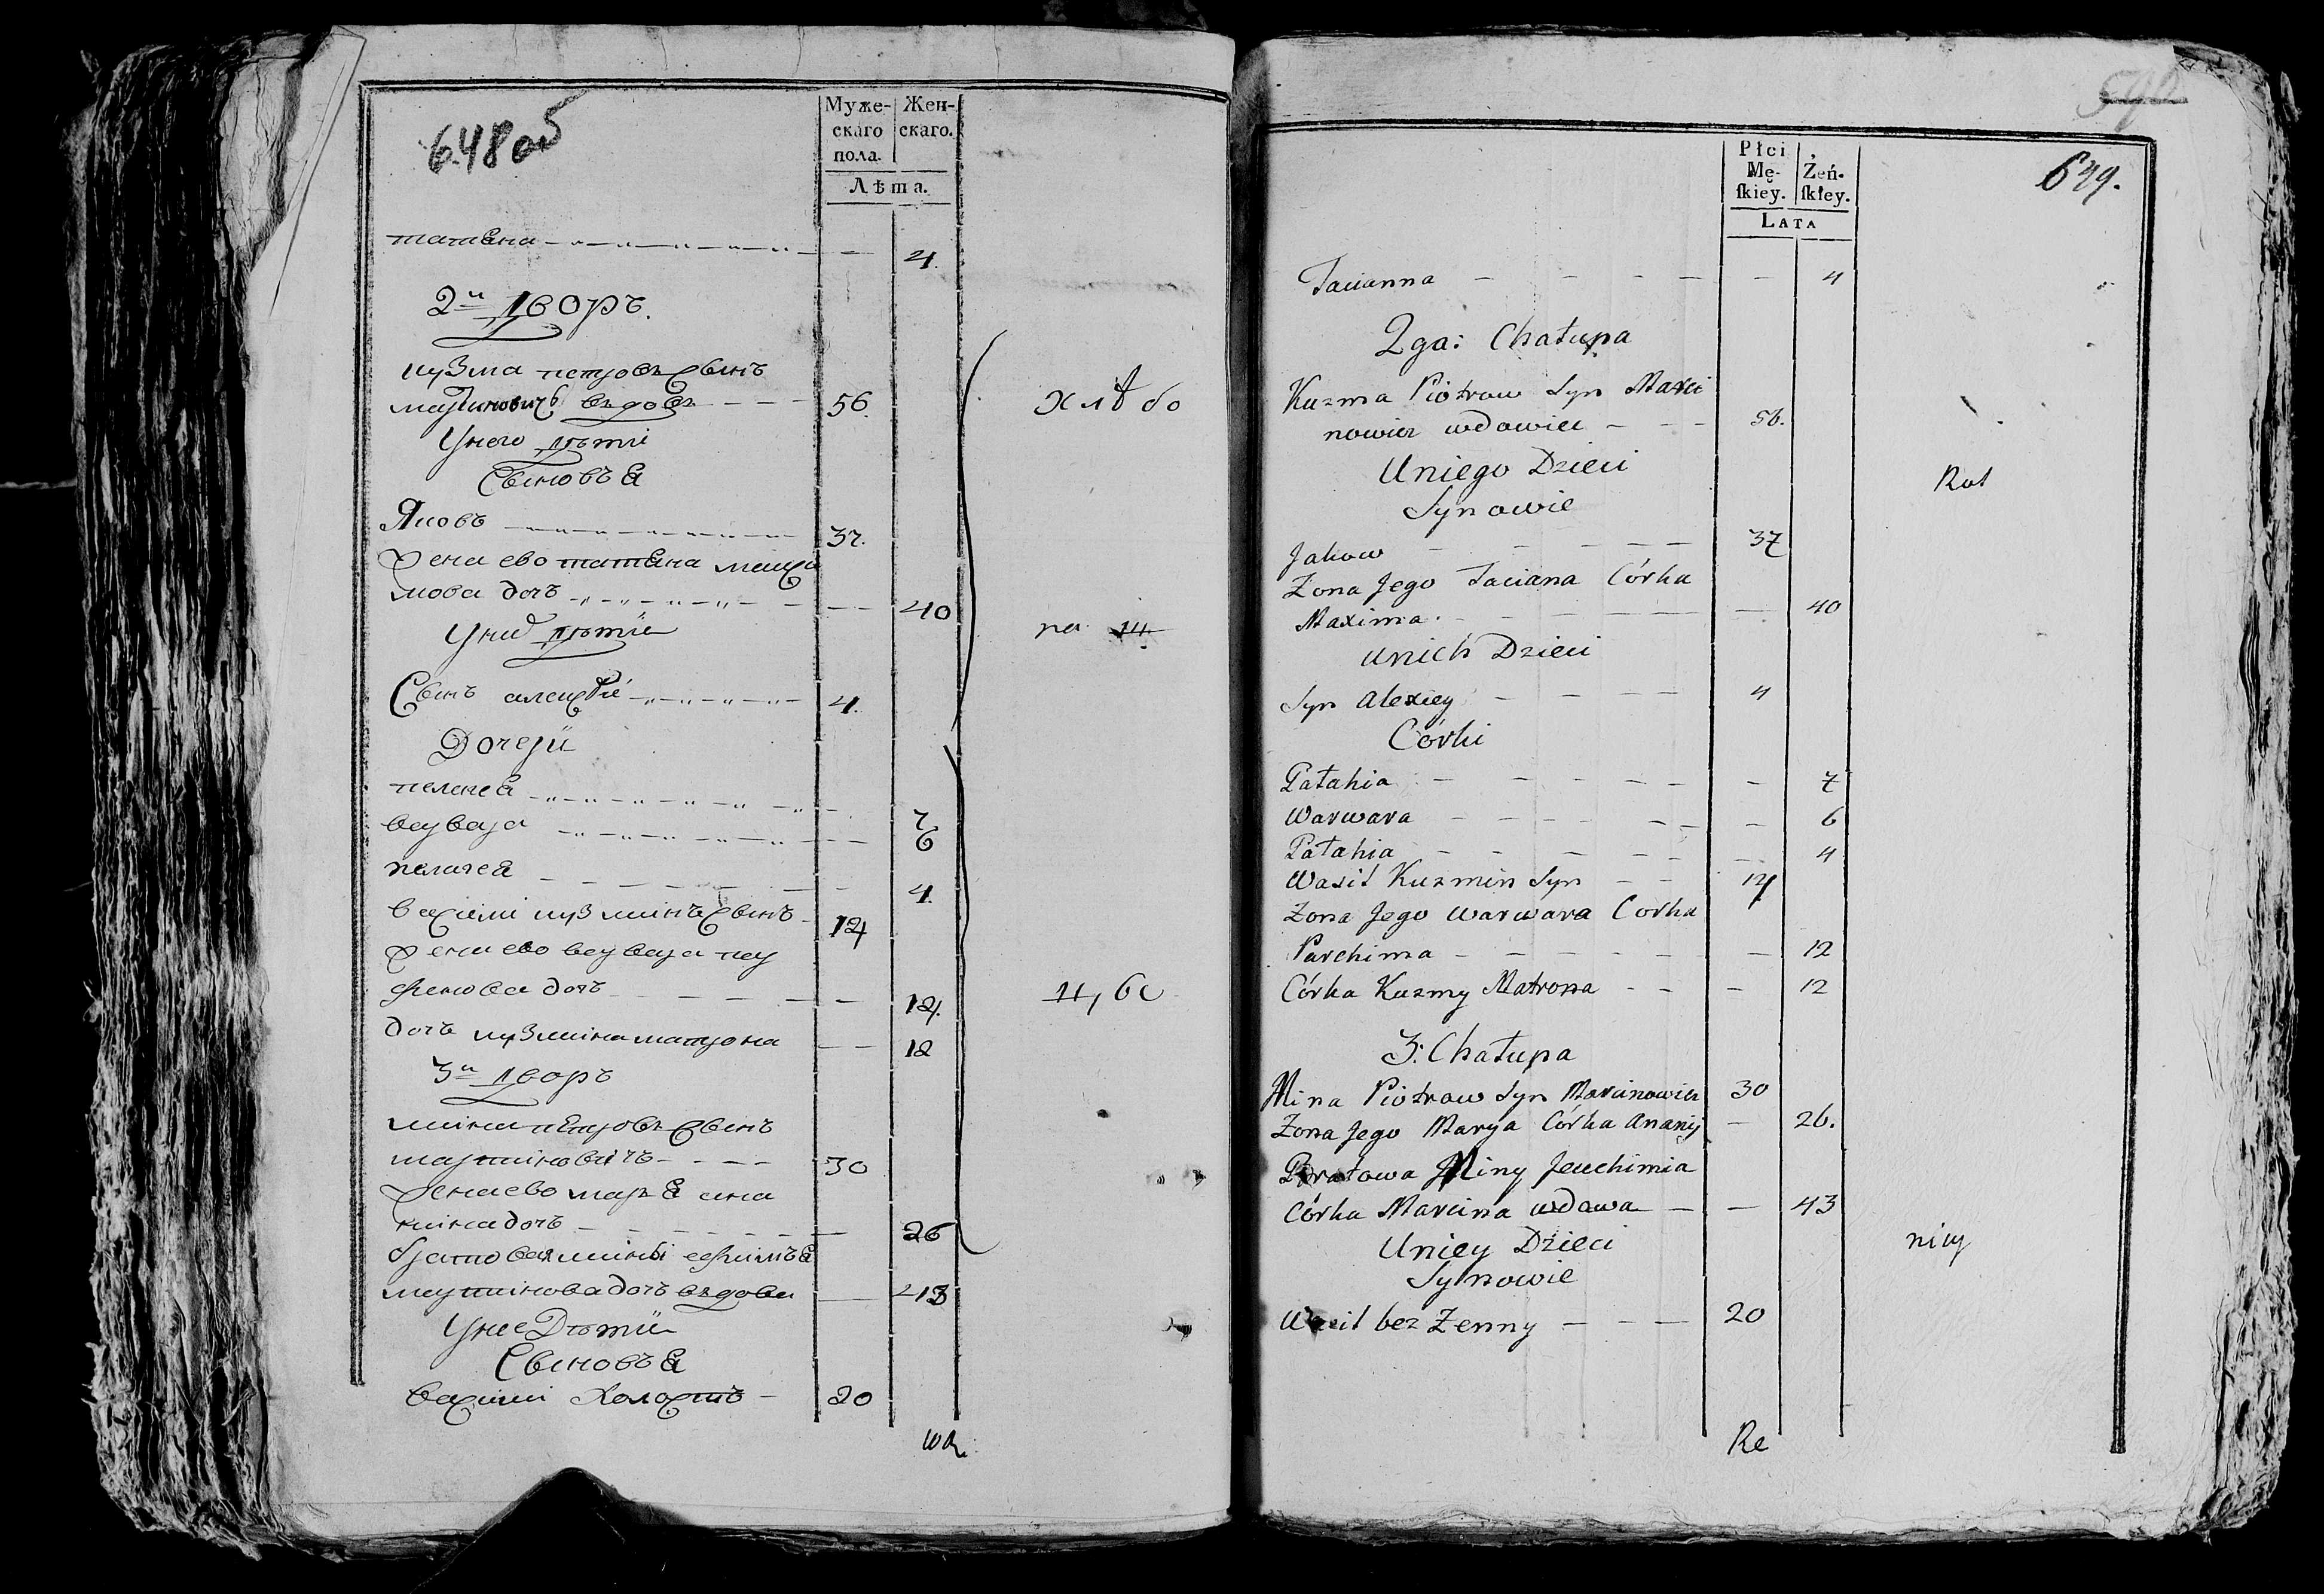 648 об
Муже-
скаго
пола.
Жен-
скаго.
Лѣта.
татьяна 4.
2й дворъ.
кузма петровъ сынъ
мартиновичъ вдовъ 56.
У него дѣти
Сыновья
Яковъ 37.
Жена ево татьяна макси
мова дочь 40
У них дѣти
Сынъ алексѣй 4.
Дочери
пелагея 7
варвара 6
пелагея 4.
васили кузминъ сынъ 14
Жена ево варвара пар
фенова дочь 12.
дочь кузмина матрона 12
3й дворъ
мина петровъ сынъ
мартиновичъ 30
Жена ево марья ана
нина дочь 26
братовая мины ефимья
мартинова дочь вдова 43
У нее Дѣти
Сыновья
васили Холостъ 20
Хлѣбо
па
649.
Płci
Mę-
ſkiey.
Żeń-
ſkiey.
LATA
Tacianna 4
2ga: Chałupa
Kuzma Piotrow Syn Marci
nowicz wdowiec 56.
Uniego Dzieci
Synowie
Jakow 37
Zona Jego Taciana Córka
Maxima 40
Unich Dzieci
Syn Alexiey 4
Córki
Pałahia 7
Warwara 6
Pałahia 4
Wasil Kuzmin Syn 14
Zona Jego Warwara Corka
Parchima 12
Córka Kuzmy Matrona 12
3: Chałupa
Mina Piotrow Syn Marcinowicz 30
Zona Jego Marya Córka Ananij 26.
Bratowa Miny Jeuchimia
Córka Marcina wdowa 43
Uniey Dzieci
Synowie
Wasil bez Zenny 20
Rol
nicy
Re